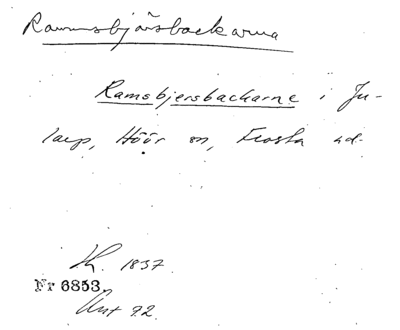 Rammsbjärsbackarna
Ramsbjersbackarne i Ju-
larp, Höör sn, Frosta hd.
Lk. 1837.
Nr 6853.
Akt 92.